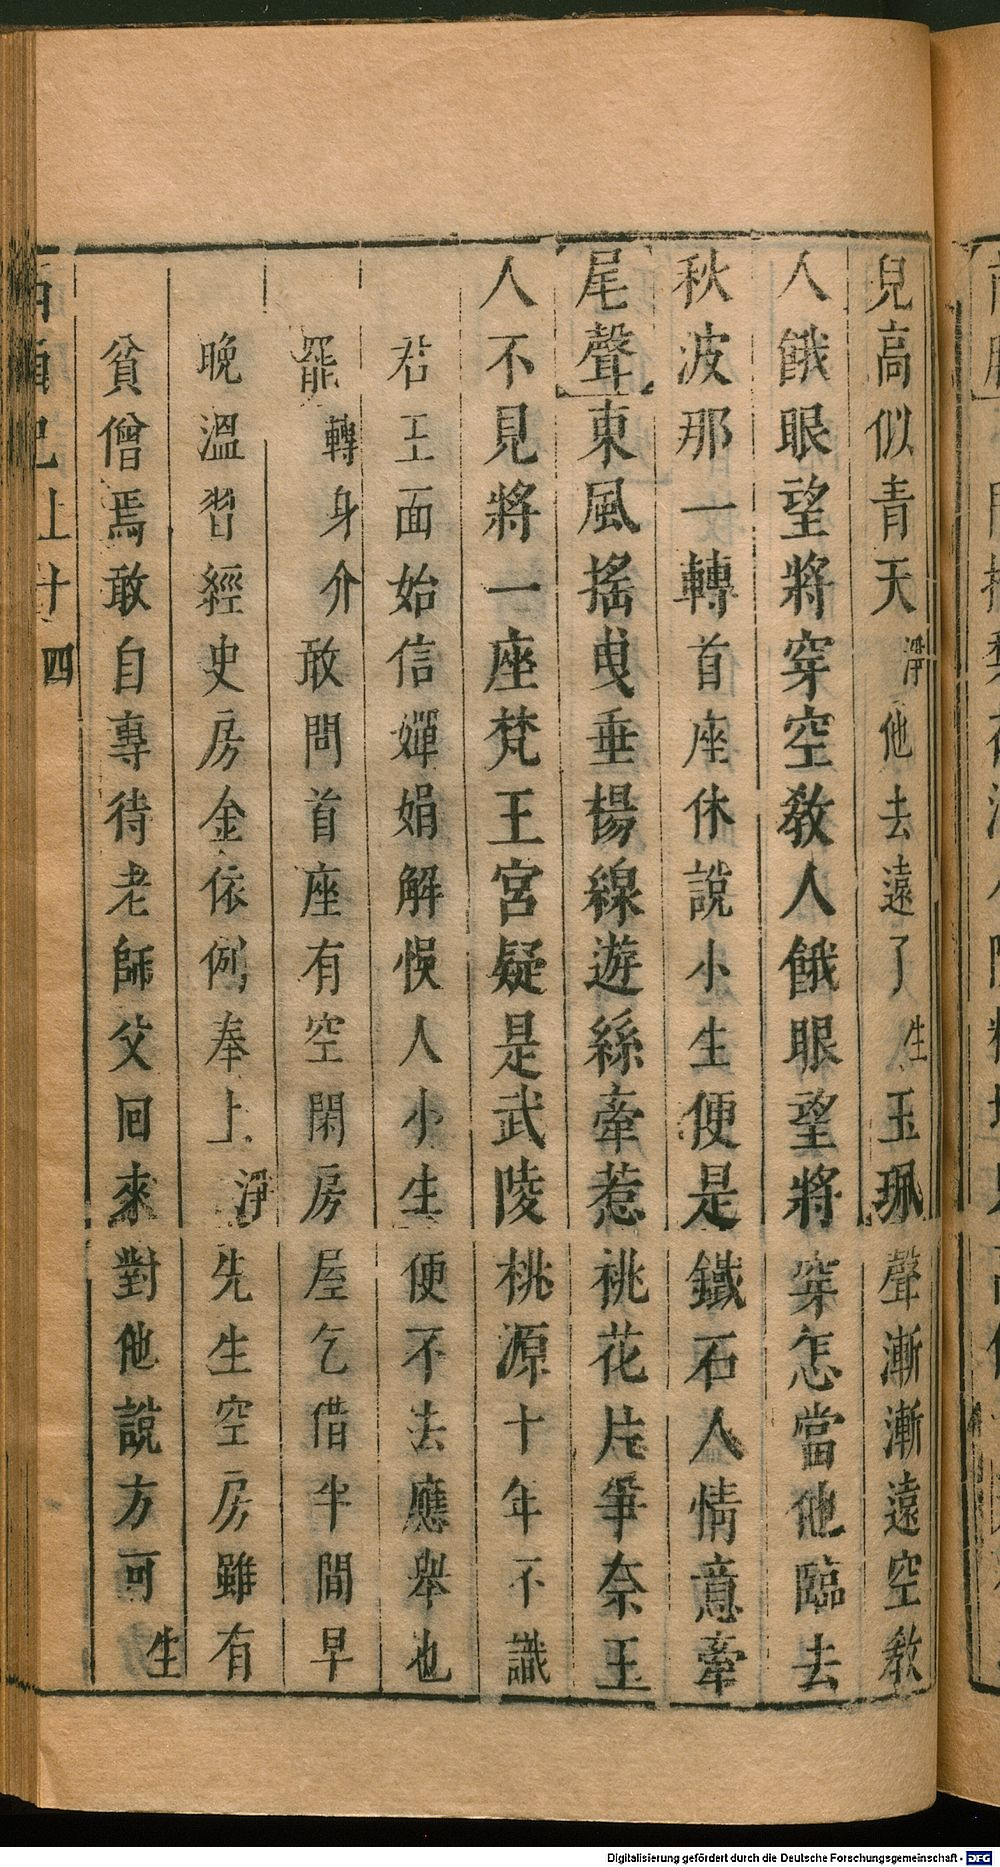 兒高似青天淨他去遠了生玉珮聲漸漸遠空教
人餓眼望將穿空教人餓眼望將穿怎當他臨去
秋波那一轉首座休說小生便是鐵石人情意牽
尾聲東風搖曳垂楊線遊絲牽惹桃花片爭奈玉
人不見將一座梵王宮疑是武陵桃源十年不識
君王面始信嬋娟解悞人小生便不去應舉也
罷轉身介敢問首座有空閑房屋乞借半間早
晚溫習經史房金依例奉上淨先生空房雖有
貧僧焉敢自專待老師父回來對他說方可生
西廂記上十四
Digitalisierung gefördert durch die Deutsche Forschungsgemeinschaft - DFG